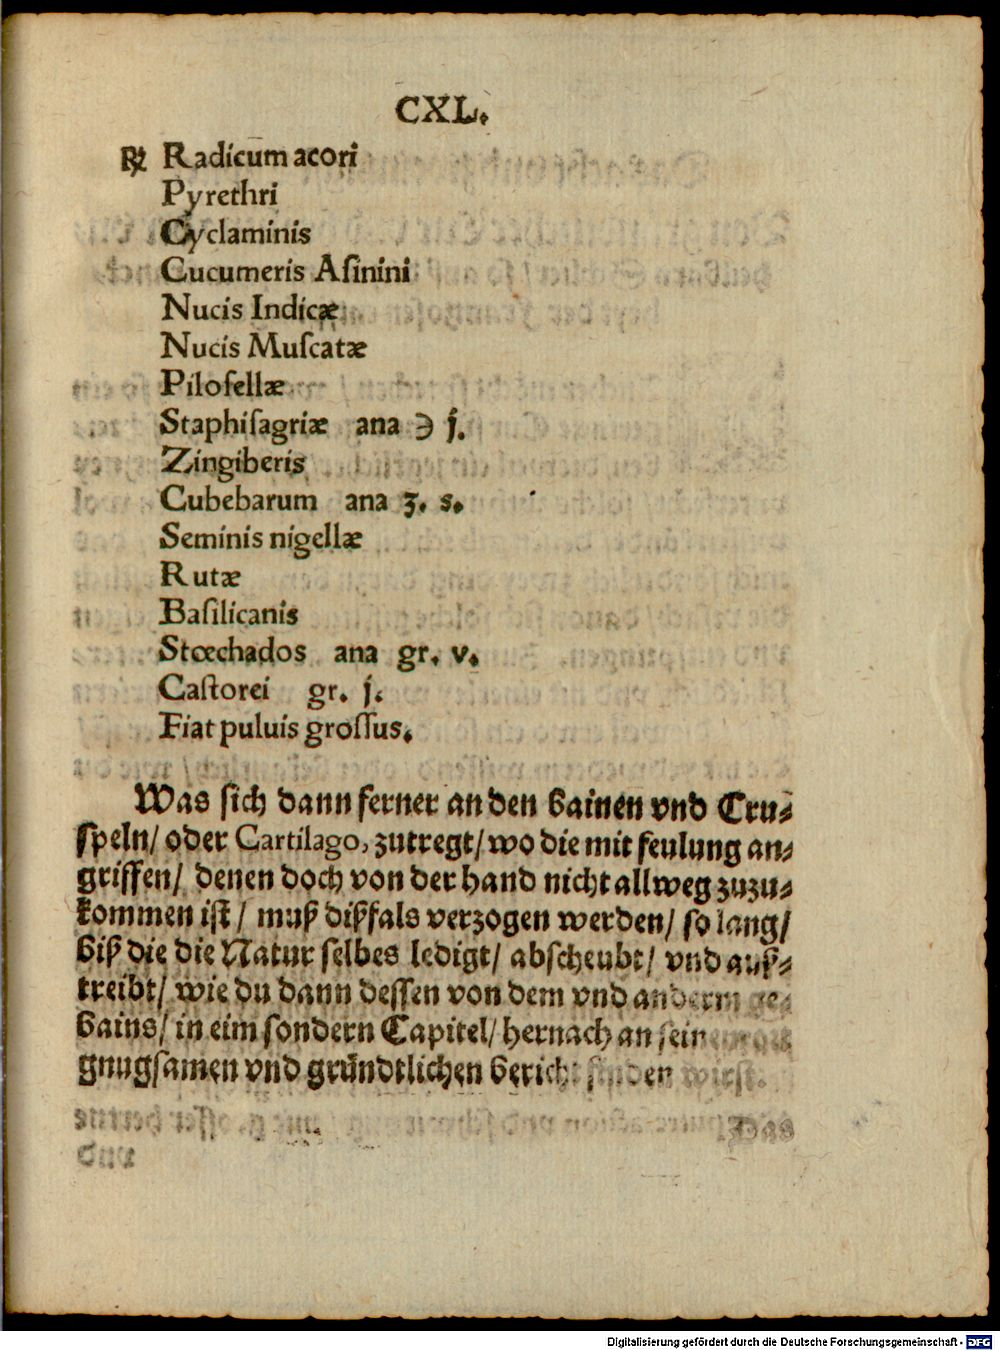 CXL.
℞ Radicum acori
Pyrethri
Cyclaminis
Cucumeris Aſinini
Nucis Indicæ
Nucis Muſcatæ
Piloſellæ
Staphiſagriæ ana ℈ j.
Zingiberis
Cubebarum ana ʒ. s.
Seminis nigellæ
Rutæ
Baſilicanis
Stœchados ana gr. v.
Caſtorei gr. j.
Fiat puluis groſſus.
Was ſich dann ferner an den bainen vnd Cru-
ſpeln/ oder Cartilago, zutregt/ wo die mit feulung an-
griffen/ denen doch von der hand nicht allweg zuzu-
kommen iſt/ muß dißfals verzogen werden/ ſo lang/
biß die die Natur ſelbes ledigt/ abſcheubt/ vnd auß-
treibt/ wie du dann deſſen von dem vnd anderm ge-
bains/ in eim ſondern Capitel/ hernach an ſein
gnugſamen vnd gründtlichen bericht finden wirſt.
Das